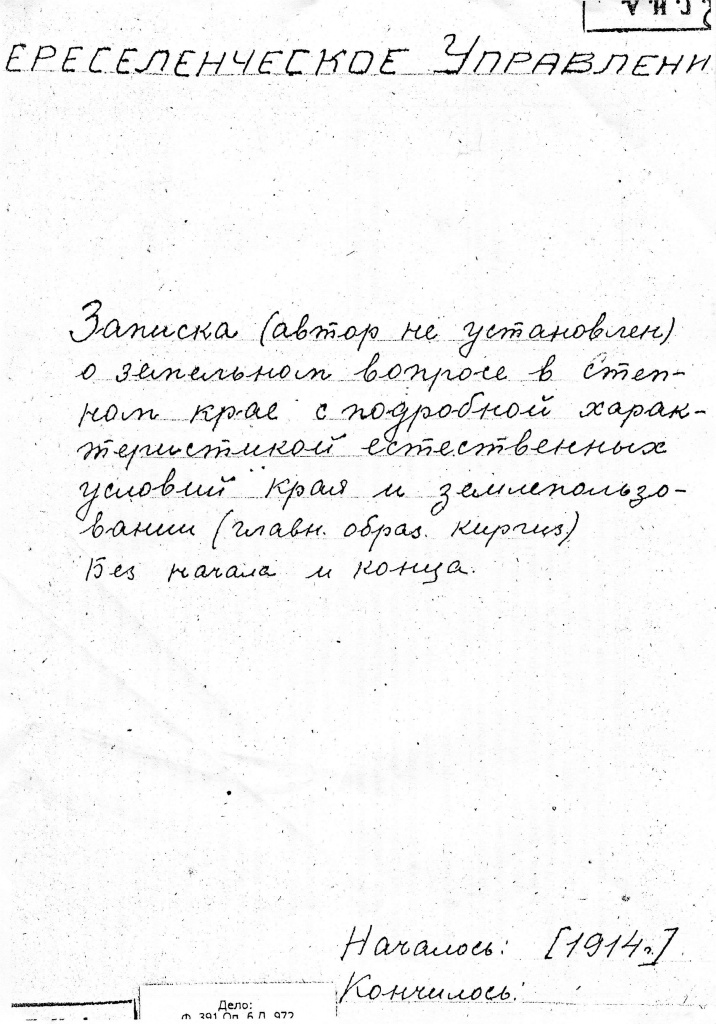 ЕРЕСЕЛЕНЧЕСКОЕ УПРАВЛЕНИ
Записка (автор не установлен)
о земельном вопросе в степ-
ном крае с подробной харак-
теристикой естественных
условий края и землепользо-
вании (главн. образ. киргиз)
Без начала и конца.
Началось: [1914г.]
Кончилось:
Дело:
Ф. 391 Оп. 6 Д. 972